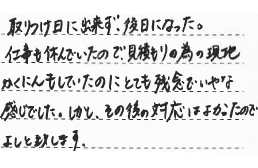 取りつけ日に出来ず後日になった。
仕事も休んでいたので、見積もりの為の現地
かくにんもしていたのにとても残念でいやな
感じでした。しかし、その後の対応はよかったので
よしと致します。